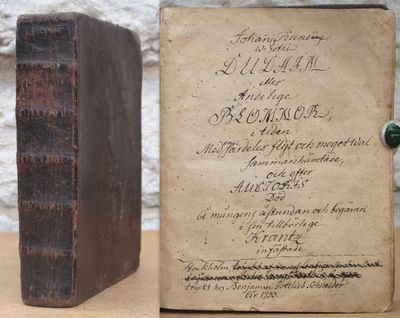 Johans Runii
DUDAIM
eller
Andelige
BLOMMOR,
i tiden
Med särdeles flijt och mogett val
sammanhämtade,
och efter
AUCTORIS
Död
på mångens åstundan och begäran
i sin tillbörlige
Krantz
infattade
Stockholm
tryckt hos Benjamin Gottlieb Schneider
År 1733.